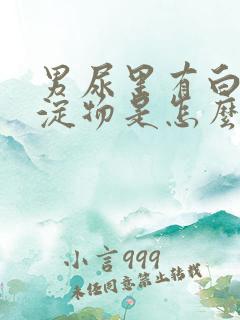 男尿里有白
淀物是怎麽
小言999
未经同意禁止转载